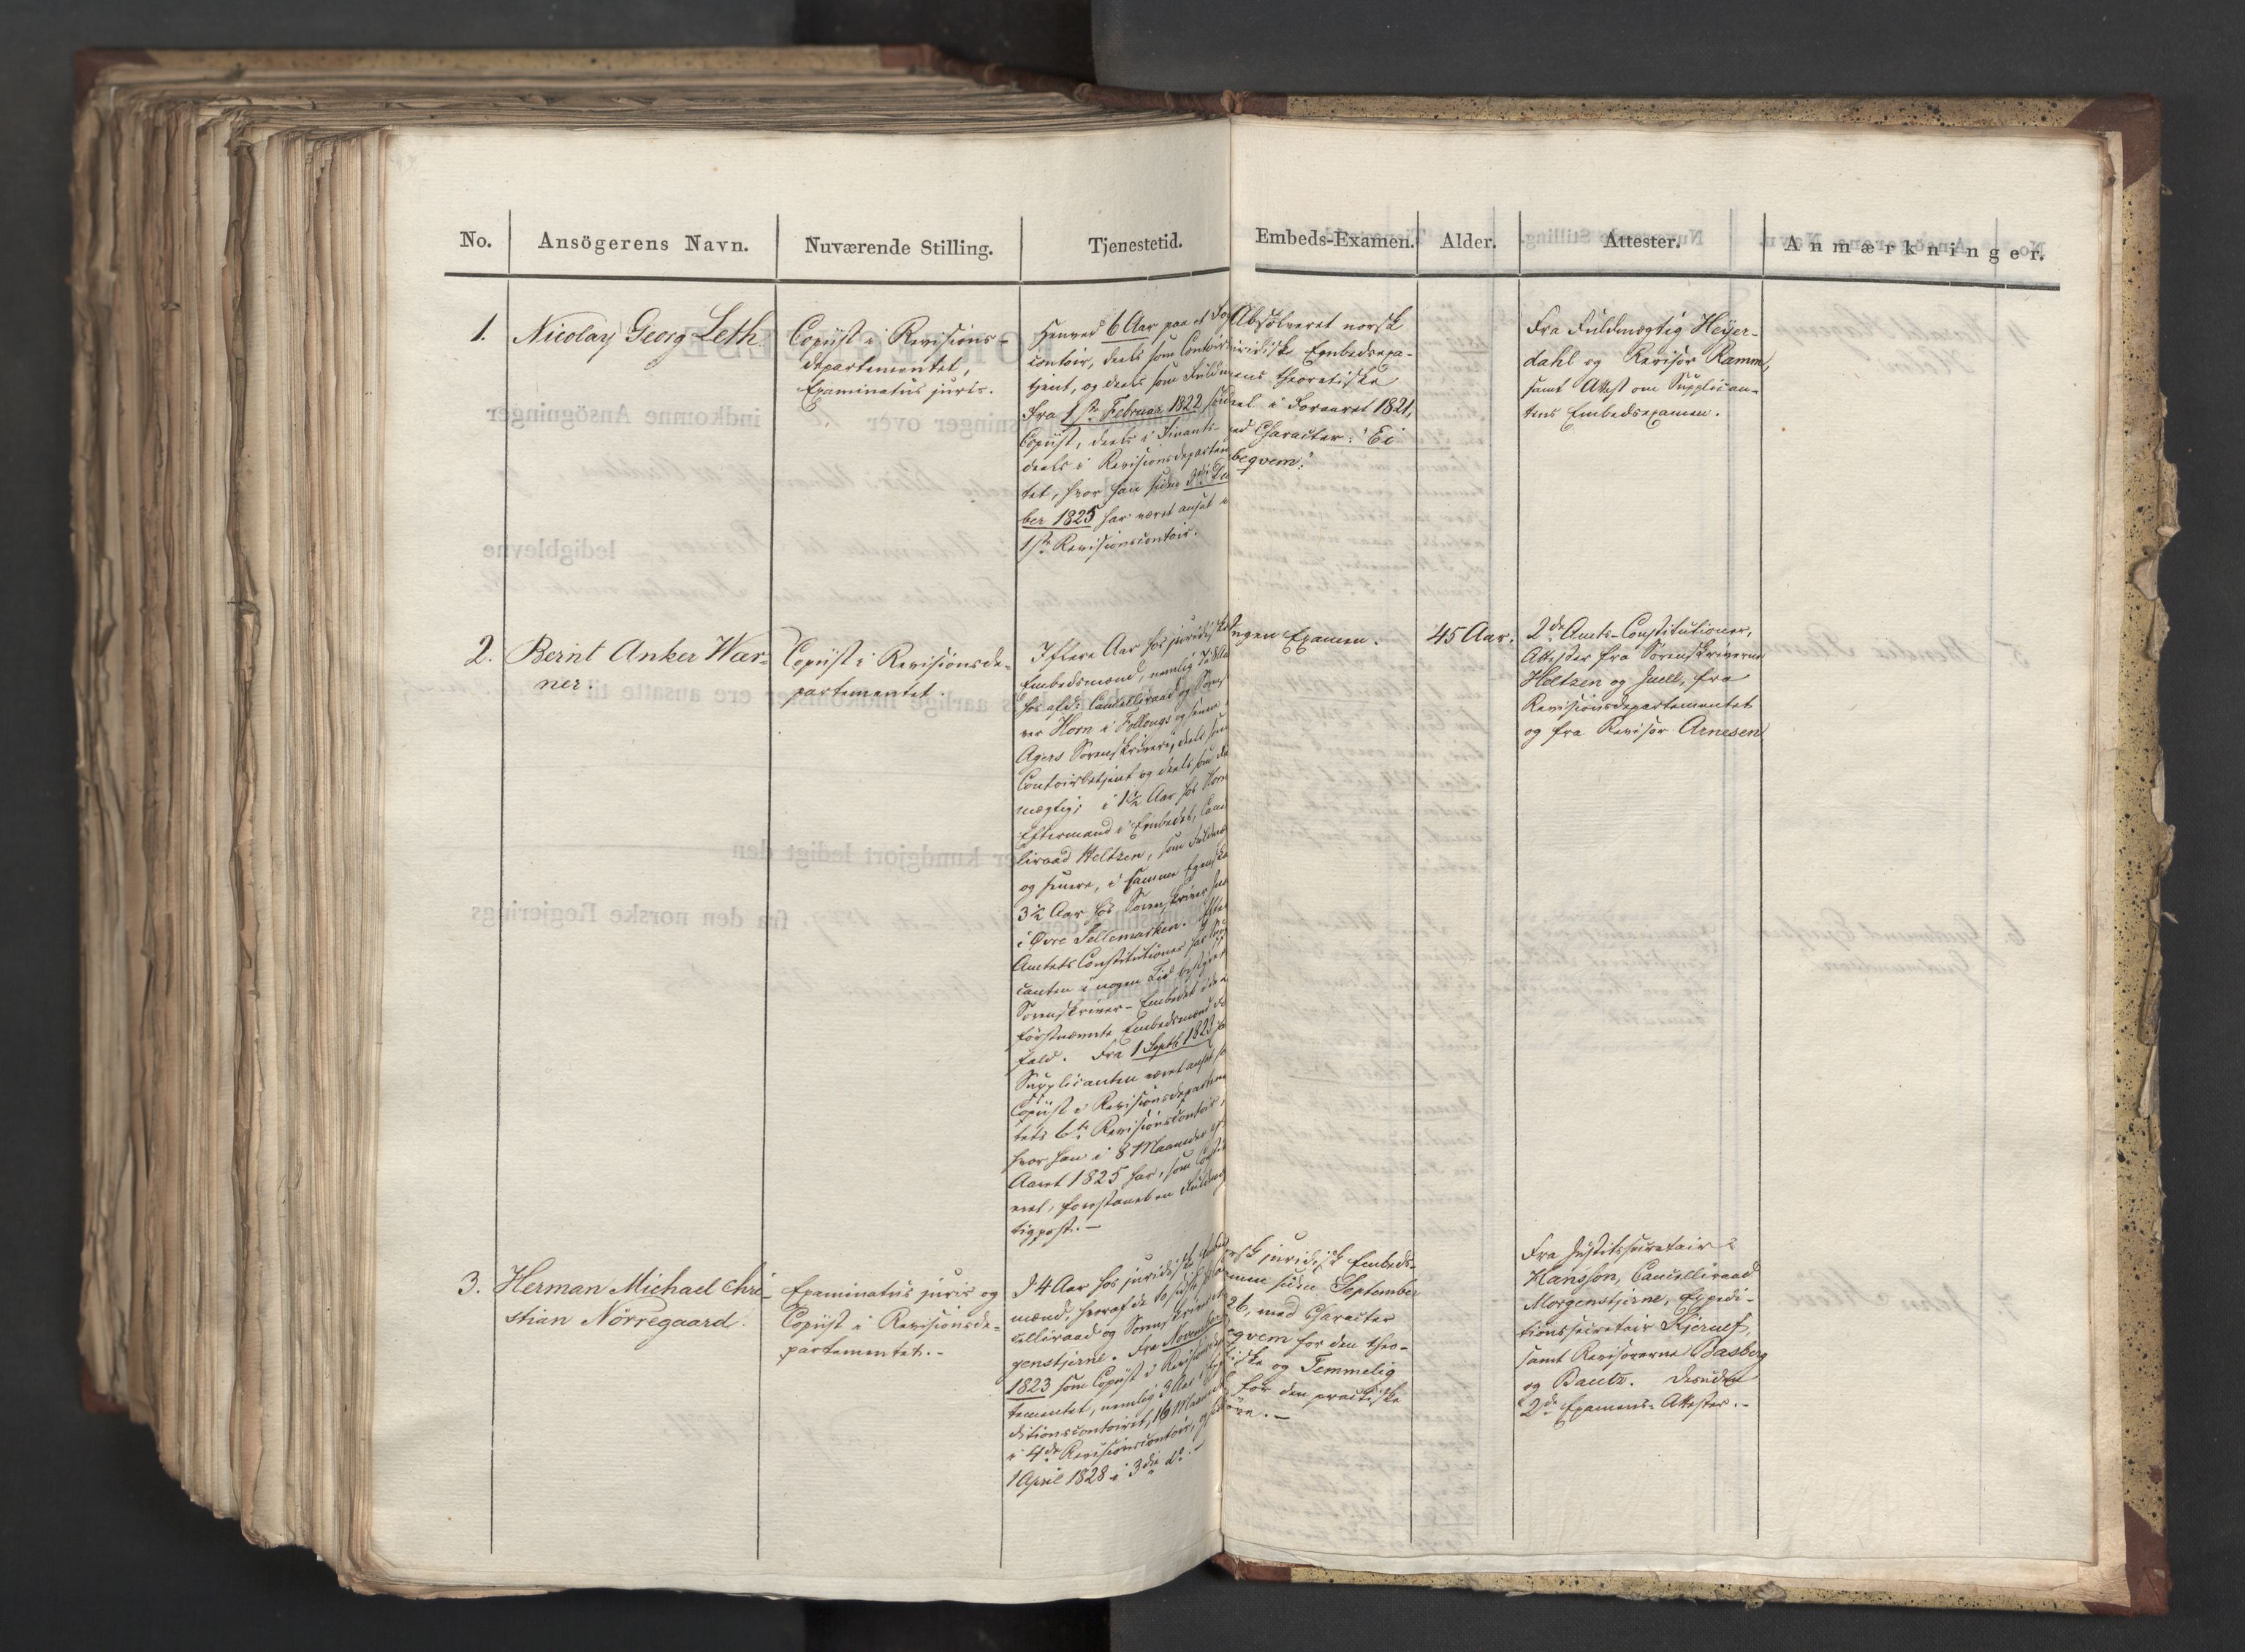 No. Ansögerens Navn. Nuværende Stilling. Tjenestetid. Embeds-Examen. Alder. Attester. Anmærkninger.
1. Nicolay Georg Leth.
Copiist i Revisions-
departementet,
Examinatus juris.
Henved 6 Aar paa et
contoir, deels som Contoir
tjent, og deels som Fuldm
Fra 1ste Februar 1822
Copiist, deels i Finants-
deels i Revisionsdepartem
tet, hvor han siden
ber 1825 har været ansat
1ste Revisionscontoir.
Absolveret norsk
juridisk Embedsexa-
mens theoretiske
Deel i Foraaret 1821,
med Character: "Ei
beqvem".
Fra Fuldmægtig Heyer-
dahl og Revisor Ramm,
samt Attest om Supplican-
tens Embedsexamen.
2. Bernt Anker War-
ner.
Copiist i Revisionsde-
partementet.
I flere Aar hos juridiske
Embedsmænd, nemlig
hos afd: Cancelliraad og Soren
ver Horn i Follougs og senere
Agers Sorenskriveri, deels som
Contoirbetjent og deels som
mægtig; i 1½ Aar hos Horns
Eftermand i Embedet, Can
liraad Heltzen, som Fuldm
og senere, i samme Egenska
3½ Aar hos Sorenskriver
i Øvre Tellemarken. Efter
Amtets Constitutioner har
canten i nogen Tid bestyret
Sorenskriver-Embedet
førstnævnte Embedsmænds
fald. Fra 1 Septb 1823
Supplicanten været ansat
Copiist i Revisionsdepartemen
tets 6te Revisionscontoir,
hvor han i 8 Maaneder
Aaret 1825 har, som
eret, forestaaet en Fuldm
tigpost. —
Ingen Examen.
45 Aar.
2de Amts-Constitutioner,
Attester fra Sorenskriverne
Heltzen og Juell, fra
Revisionsdepartementet
og fra Revisor Arnesen
3. Herman Michael Chri-
stian Nörregaard.
Examinatus juris og
Copiist i Revisionsde-
partementet. -
I 4 Aar hos juridisk
mænd, hvoraf de to sidste
celliraad og Sorenskriver
genstjerne. Fra November
1823 som Copiist i Revisionsde
tementet, nemlig 3 Aar i
ditionscontoiret, 16 Maaneder
i 4de Revisionscontoir, og
1 April 1828 i 3die do. —
norsk juridisk Embeds-
examen siden September
1826, med Character
beqvem for den theo-
retiske og Temmelig
for den practiske
Prøve. —
Fra Justitssecretair
Hansson, Cancelliraad
Morgenstjerne, Expedi-
tionssecretair Kjerulf,
samt Revisorerne Basberg
og Bautz. Desuden
2de Examens-Attester. -